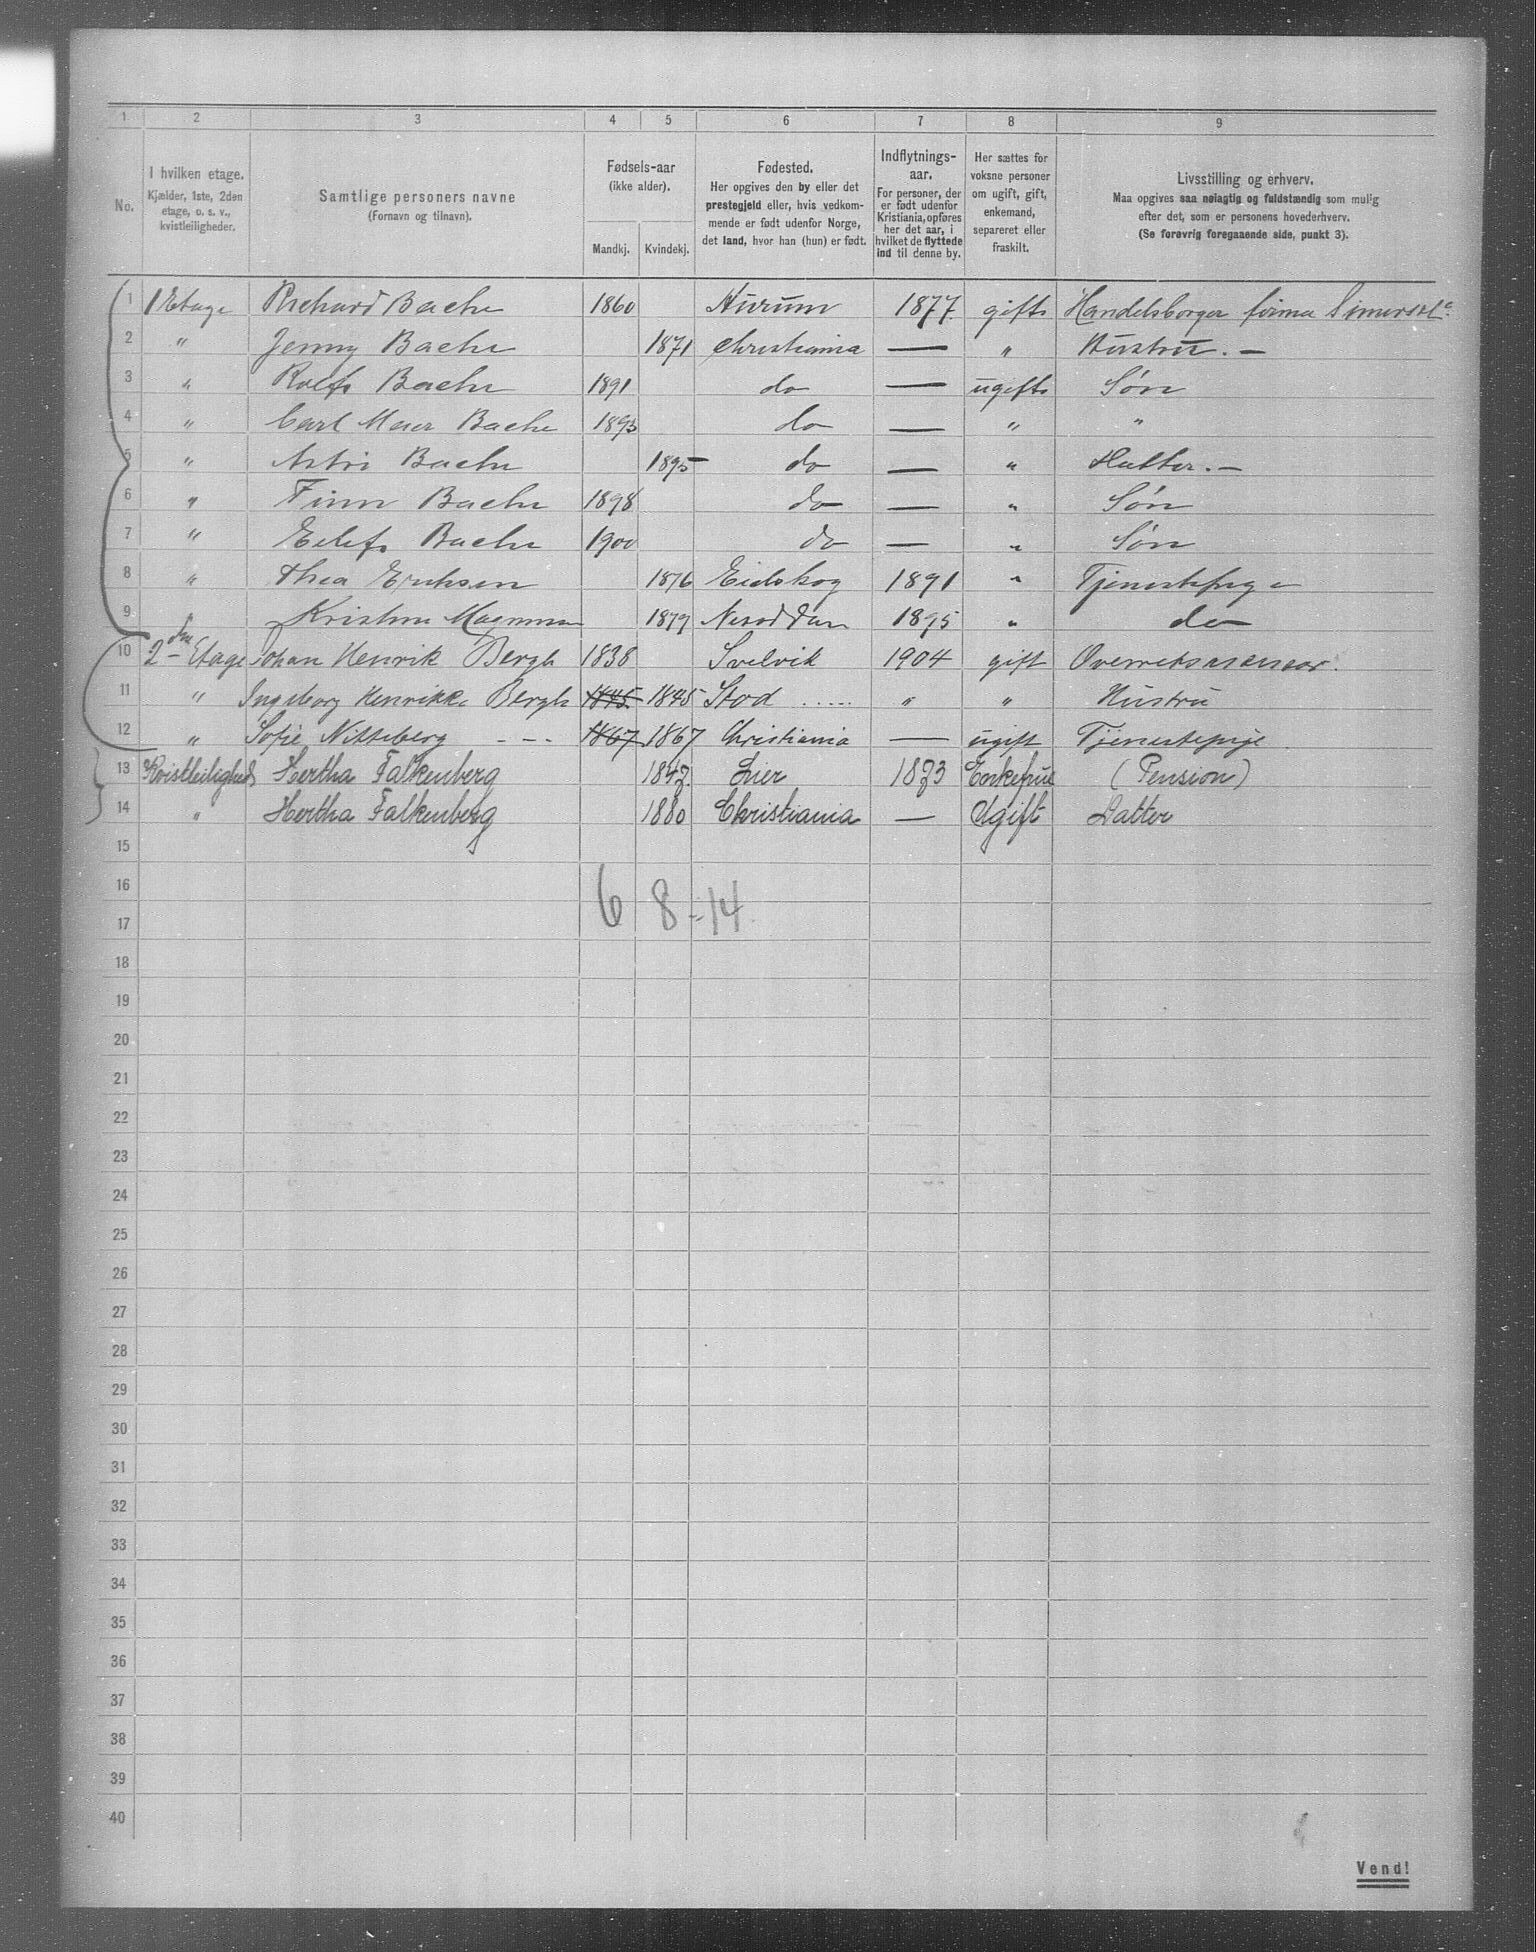 1 2 3 4 5 6 7 8 9
No.
I hvilken etage.
Kjælder, 1ste, 2den
etage, o. s. v.,
kvistleiligheder.
Samtlige personers navne
(Fornavn og tilnavn).
Fødsels-aar
(ikke alder).
Mandkj. Kvindekj.
Fødested.
Her opgives den by eller det
prestegjeld eller, hvis vedkom-
mende er født udenfor Norge,
det land, hvor han (hun) er født.
Indflytnings-
aar.
For personer, der
er født udenfor
Kristiania, opføres
her det aar, i
hvilket de flyttede
ind til denne by.
Her sættes for
voksne personer
om ugift, gift,
enkemand,
separeret eller
fraskilt.
Livsstilling og erhverv.
Maa opgives saa nøiagtig og fuldstændig som mulig
efter det, som er personens hovederhverv.
(Se forøvrig foregaaende side, punkt 3).
1 1 Etage Richard Bache 1860 Hurum 1877. gift Handelsborger firma
2 " Jenny Bache 1871 Christiania — " Hustru. —
3 " Rolf Bache 1891 do — ugift Søn
4 " Carl Meier Bache 1893 do — " "
5 " Astri Bache 1895 do — " Datter. —
6 " Finn Bache 1898 do — " Søn
7 " Eilif Bache 1900 do — " Søn
8 " Thea Eriksen 1876 Eidskog 1891 " Tjenestepige
9 " Kristine Magnussen 1879 Nesodden 1895 " do
10 2den Etage Johan Henrik Bergh 1838 Svelvik 1904 gift Overretssagfører.
11 " Ingeborg Henrikke Bergh 1845. 1845 Stod ..... " " Hustru
12 " Sofie Nitteberg - - - 1867 1867 Christiania — ugift Tjenestepige
13 Kvistleilighed Hertha Falkenberg 1847. Lier 1873 Enkefrue (Pension)
14 " Hertha Falkenberg 1880 Christiania — Ugift Datter
15
16
6 8 = 14.
17
18
19
20
21
22
23
24
25
26
27
28
29
30
31
32
33
34
35
36
37
38
39
40
Vend!